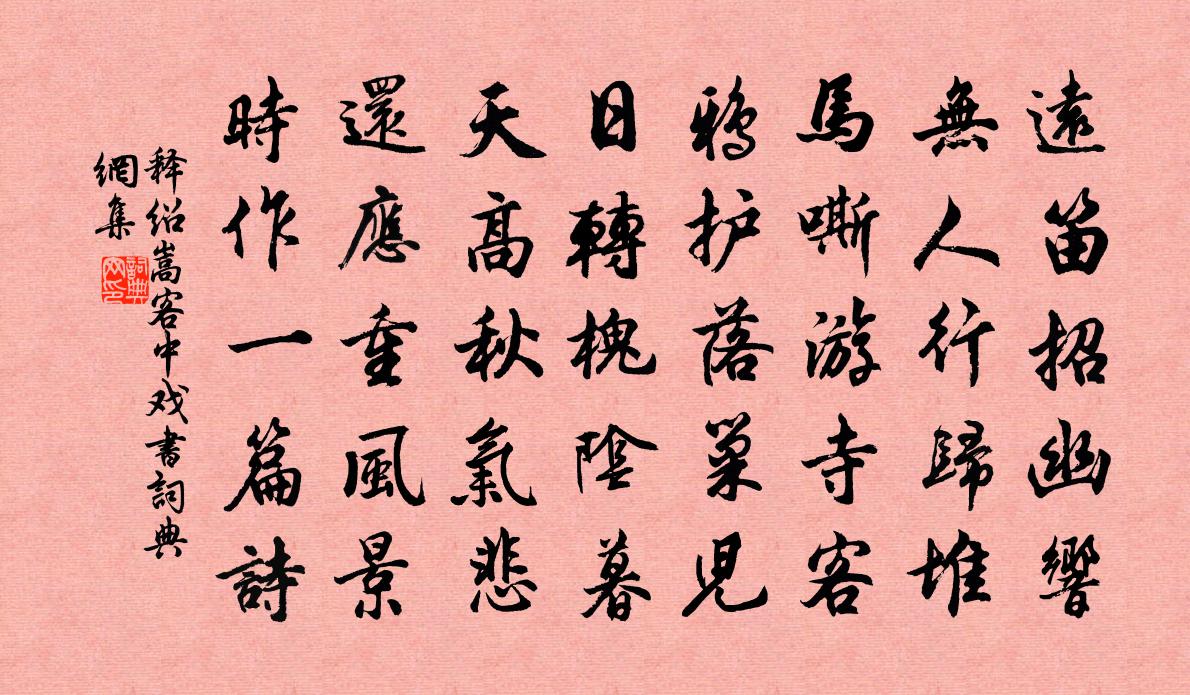 遠笛招幽響
無人行歸堆
馬嘶游寺客
鴉护落巢児
日轉槐陰暮
天高秋氣悲
還應重風景
時作一篇詩
释绍嵩客中戏書詞典
網集
詞典
网印